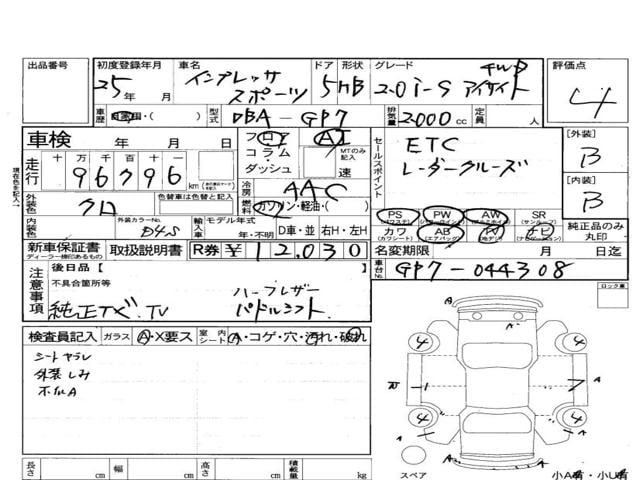 出品番号 初度登録年月 車名 ドア 形状 グレード 評価点
25年 月 インプレッサ スポーツ 5 HB 2.0i-S アイサイト 4WD 4
車歴 自家用・( ) 型式 DBA-GP7 排気量 2000 cc 定員 人
車検 年 月 日 フロア AT ETC [外装]
走行 十 万 千 百 十 一 コラム・ MTのみ記入 セールスポイント レーダークルーズ B
96796 km ダッシュ 速
冷房 AAC [内装]
外装色 クロ 色替車は色替と記入 燃料 ガソリン・軽油・( ) PS PW AW SR B
内装色 外装カラーNo. D4S 輸入車 モデル年式 年・不明 D車・並 右H・左H カワ AB TV ナビ 純正品のみ丸印
(パワステ) (パワーウインド) (アルミホイル) (サンルーフ)
(カワシート) (エアバッグ) (地デジ) (ナビゲーション)
新車保証書 取扱説明書 R券 ¥ 12,030 名変期限 月 日迄
ディーラー捺印あるもの
車台No. GP7-044308
注意事項 後日品【 】
不具合箇所等 ハーフレザー
純正ナビ.TV パドルシフト
ロック車
現在色を記入
検査員記入 ガラス A・X要ス 室内シート A・コゲ・穴・汚れ・破れ
シートヤブレ
外装しみ
ホイルA
A
4 4
A
4 4
A A
スペア
小A有・小U有
長さ cm 幅 cm 高さ cm 積載量 kg